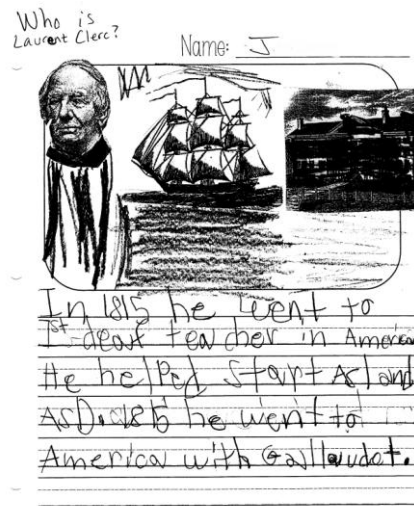 Who is
Laurent Clerc?
Name: J
In 1815 he went to
1st deaf teacher in America
He helped start ASL and
ASD. 1815 he went to
America with Gallaudet.